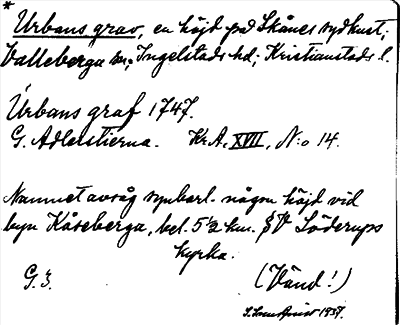 * Urbans grav, en höjd på Skånes sydkust;
Valleberga sn; Ingelstads hd; Kristianstads l.
Urbans graf 1747.
G. Adlerstierna. Kr.A, XVII, N:o 14.
Namnet avsåg synbarl. någon höjd vid
byn Kåseberga, bel. 5½ km. SV Löderups
kyrka.
G. 3. (Vänd!)
1937.